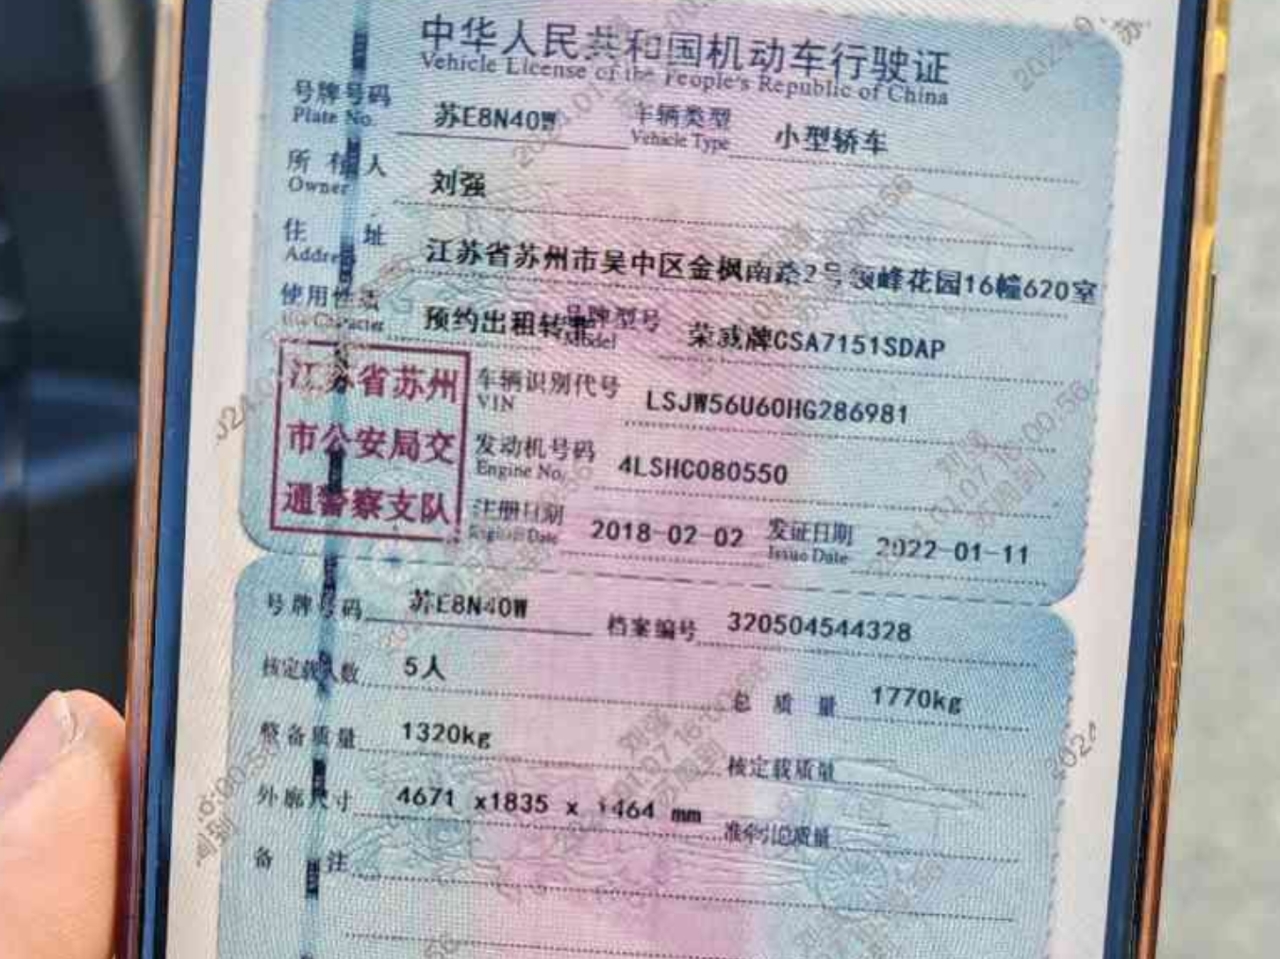 中华人民共和国机动车行驶证
Vehicle License of the People's Republic of China
号牌号码 苏E8N40W 车辆类型 小型轿车
Plate No. Vehicle Type
所有人 刘强
Owner
住址 江苏省苏州市吴中区金枫南路2号领峰花园16幢620室
Address
使用性质 预约出租转非 品牌型号 荣威牌CSA7151SDAP
Use Character Model
江苏省苏州
市公安局交
通警察支队
车辆识别代号 LSJW56U60HG286981
VIN
发动机号码 4LSHC080550
Engine No.
注册日期 2018-02-02 发证日期 2022-01-11
Register Date Issue Date
号牌号码 苏E8N40W 档案编号 320504544328
核定载人数 5人 总质量 1770kg
整备质量 1320kg 核定载质量
外廓尺寸 4671 x1835 x 1464 mm 准牵引总质量
备注